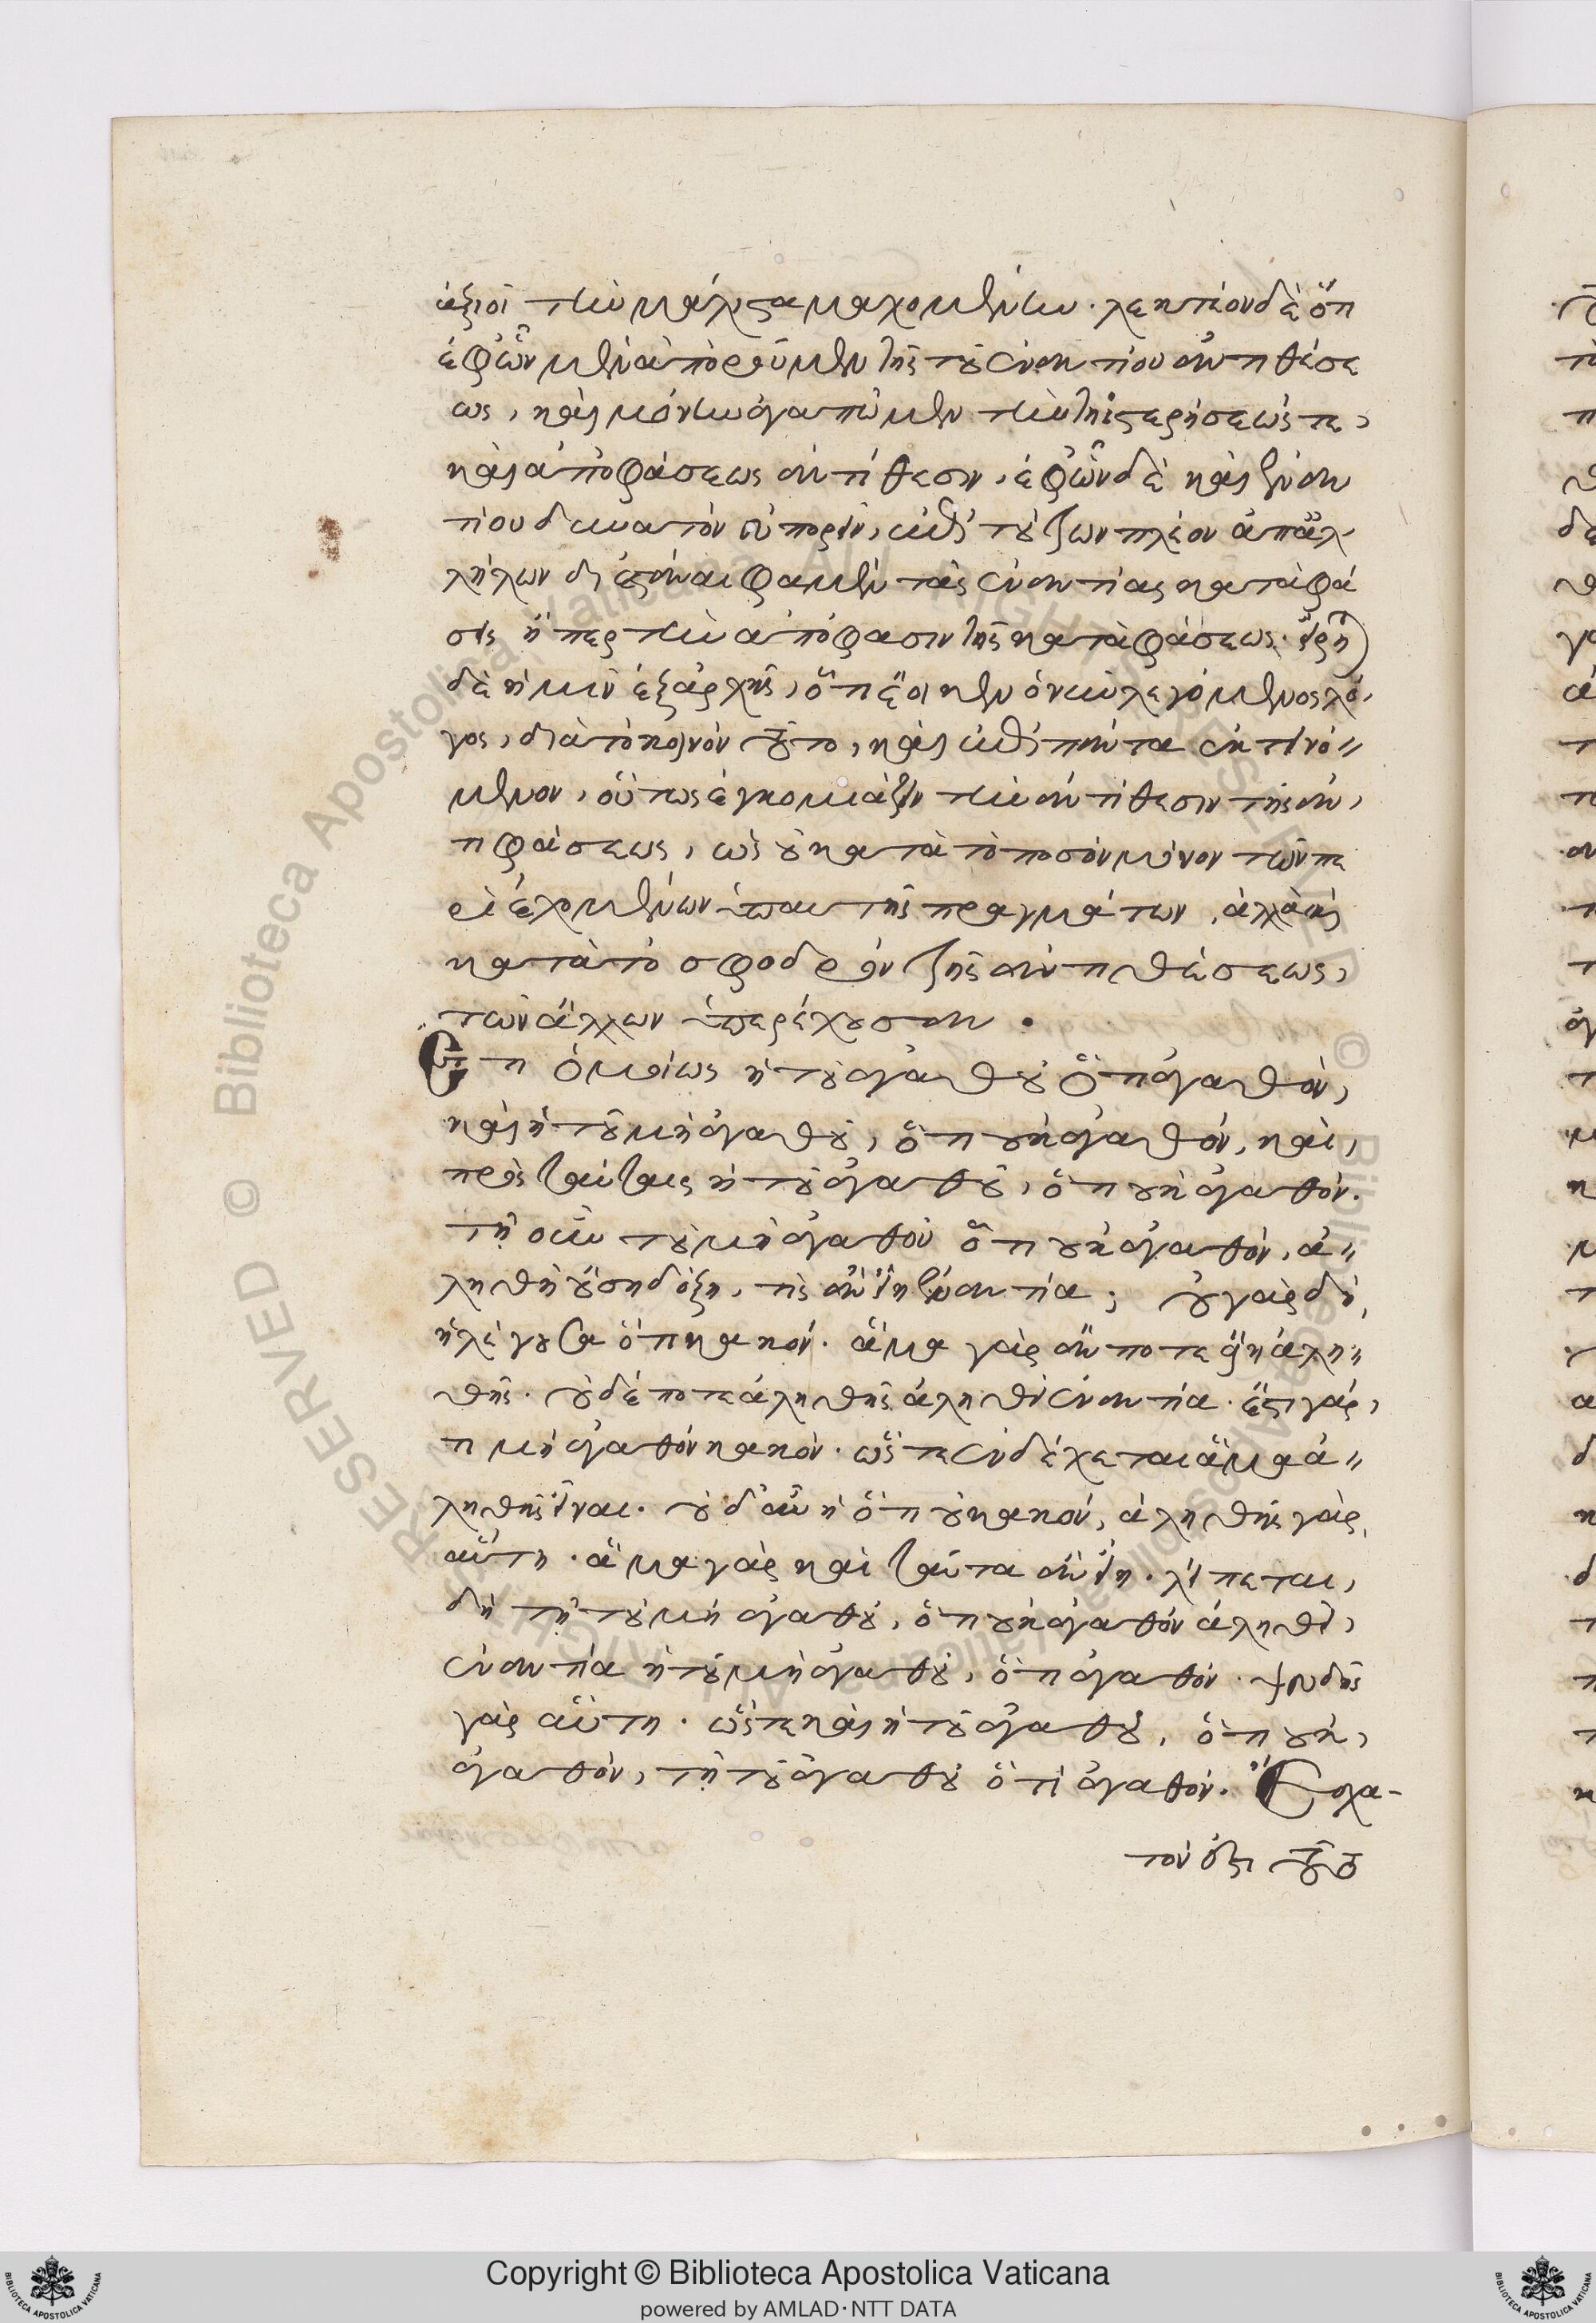 ἀξιοῖ τὴν μάλιστα μαχομένην. λεκτέον δὲ ὅτι
ἐφ' ὧν μὲν ἀποροῦμεν τῆς τοῦ ἐναντίου ἀντιθέσε
ως, καὶ μόνην ἀγαπῶμεν τὴν τῆς στερήσεώς τε
καὶ ἀποφάσεως ἀντίθεσιν, ἐφ' ὧν δὲ καὶ ἐναν
τίου δυνατὸν εὐπορεῖν, ἐπὶ τούτων πλέον ἀπ' ἀλ
λήλων διεστάναι φαμὲν τὰς ἐναντίας καταφά
σεις ἤπερ τὴν ἀπόφασιν τῆς καταφάσεως. εἴρη
δὲ ἡμῖν ἐξ ἀρχῆς, ὅτι ἔοικεν ὁ νῦν λεγόμενος λό
γος, διὰ τὸ κοινὸν τοῦτο, καὶ ἐπὶ πάντα ἐκτεινό
μενον, οὕτως ἐγκωμιάζειν τὴν ἀντίθεσιν τῆς ἀν
τιφάσεως, ὡς οὐ κατὰ τὸ ποσὸν μόνον τῶν πε
ριεχομένων ὑπ' αὐτῆς πραγμάτων, ἀλλὰ καὶ
κατὰ τὸ σφοδρὸν τῆς ἀντιθέσεως,
τῶν ἄλλων ὑπερέχουσαν.
Ἔτι ὁμοίως ἡ τοῦ ἀγαθοῦ ὅτι ἀγαθὸν,
καὶ ἡ τοῦ μὴ ἀγαθοῦ, ὅτι οὐκ ἀγαθόν, καὶ,
πρὸς ταύταις ἡ τοῦ ἀγαθοῦ, ὅτι οὐκ ἀγαθόν.
τῇ οὖν τοῦ μὴ ἀγαθοῦ ὅτι οὐκ ἀγαθόν, ἀ
ληθῆ οὔσῃ δόξῃ, τίς ἂν εἴη ἐναντία; οὐ γὰρ δὴ,
ἡ λέγουσα ὅτι κακόν. ἅμα γὰρ ἄν ποτε εἴη ἀλη
θής. οὐδέποτε ἀληθὴς ἀληθεῖ ἐναντία. ἔστι γάρ,
τι μὴ ἀγαθὸν κακόν. ὥστε ἐνδέχεται ἅμα ἀ
ληθῆς εἶναι. οὐδ' αὖ ἡ ὅτι οὐ κακόν, ἀληθὴς γὰρ
αὕτη. ἅμα γὰρ καὶ ταῦτα ἂν εἴη. λείπεται,
δὴ τῇ τοῦ μὴ ἀγαθοῦ, ὅτι οὐκ ἀγαθὸν ἀληθεῖ,
ἐναντία ἡ τοῦ μὴ ἀγαθοῦ, ὅτι ἀγαθόν. ψευδὴς
γὰρ αὕτη. ὥστε καὶ ἡ τοῦ ἀγαθοῦ, ὅτι οὐκ,
ἀγαθόν, τῇ τοῦ ἀγαθοῦ ὅτι ἀγαθόν. Ἔσχα-
τόν ἐστι τοῦτο